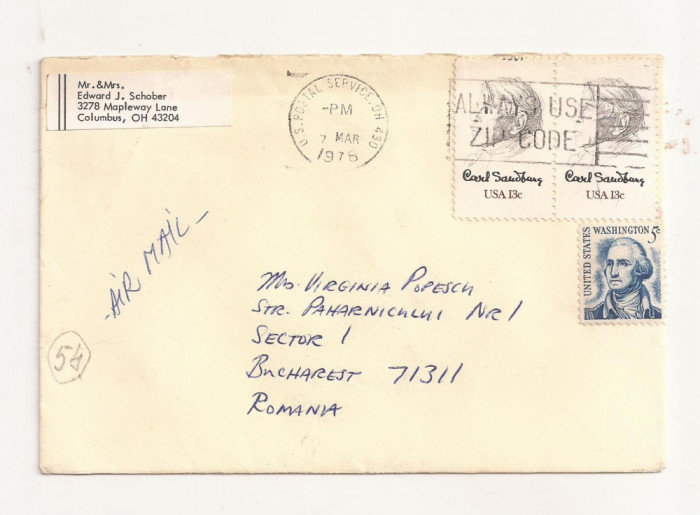 Mr.&Mrs.
Edward J. Schober
3278 Mapleway Lane
Columbus, OH 43204
U.S. POSTAL SERVICE, OH 430
-PM
7 MAR
1978
ALWAYS USE
ZIP CODE
Carl Sandburg
USA 13c
Carl Sandburg
USA 13c
UNITED STATES
WASHINGTON 5c
-AIR MAIL-
Mrs. VIRGINIA POPESCU
STR. PAHARNICULUI NR 1
SECTOR 1
BUCHAREST 71311
ROMANIA